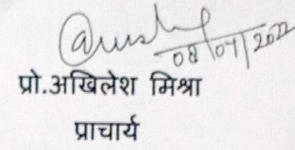 08/07/2022
प्रो.अखिलेश मिश्रा
प्राचार्य